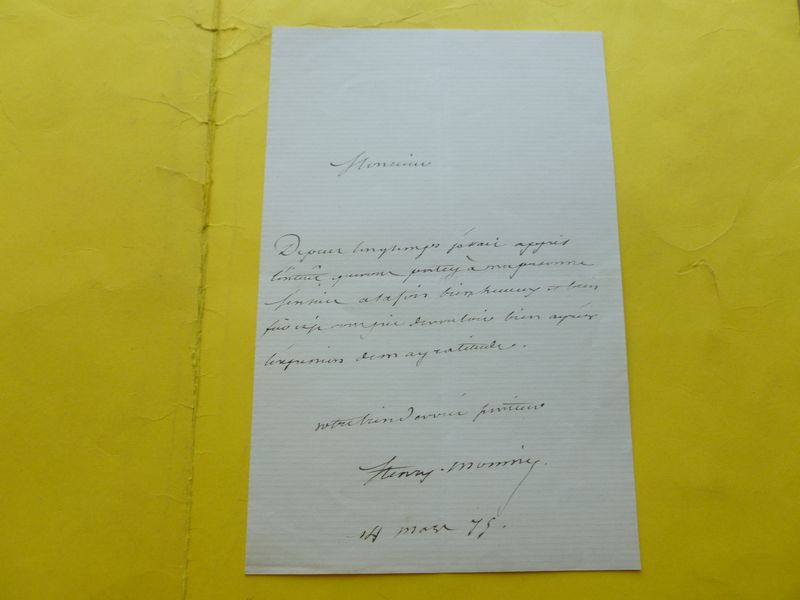 Monsieur
Depuis longtemps j'avais appris
l'intérêt que vous portez à ma personne
j'en suis à la fois bien heureux et bien
vous prie de vouloir bien agréer
l'expression de ma gratitude.
votre bien dévoué serviteur
Henry Monnier.
14 mars 75.